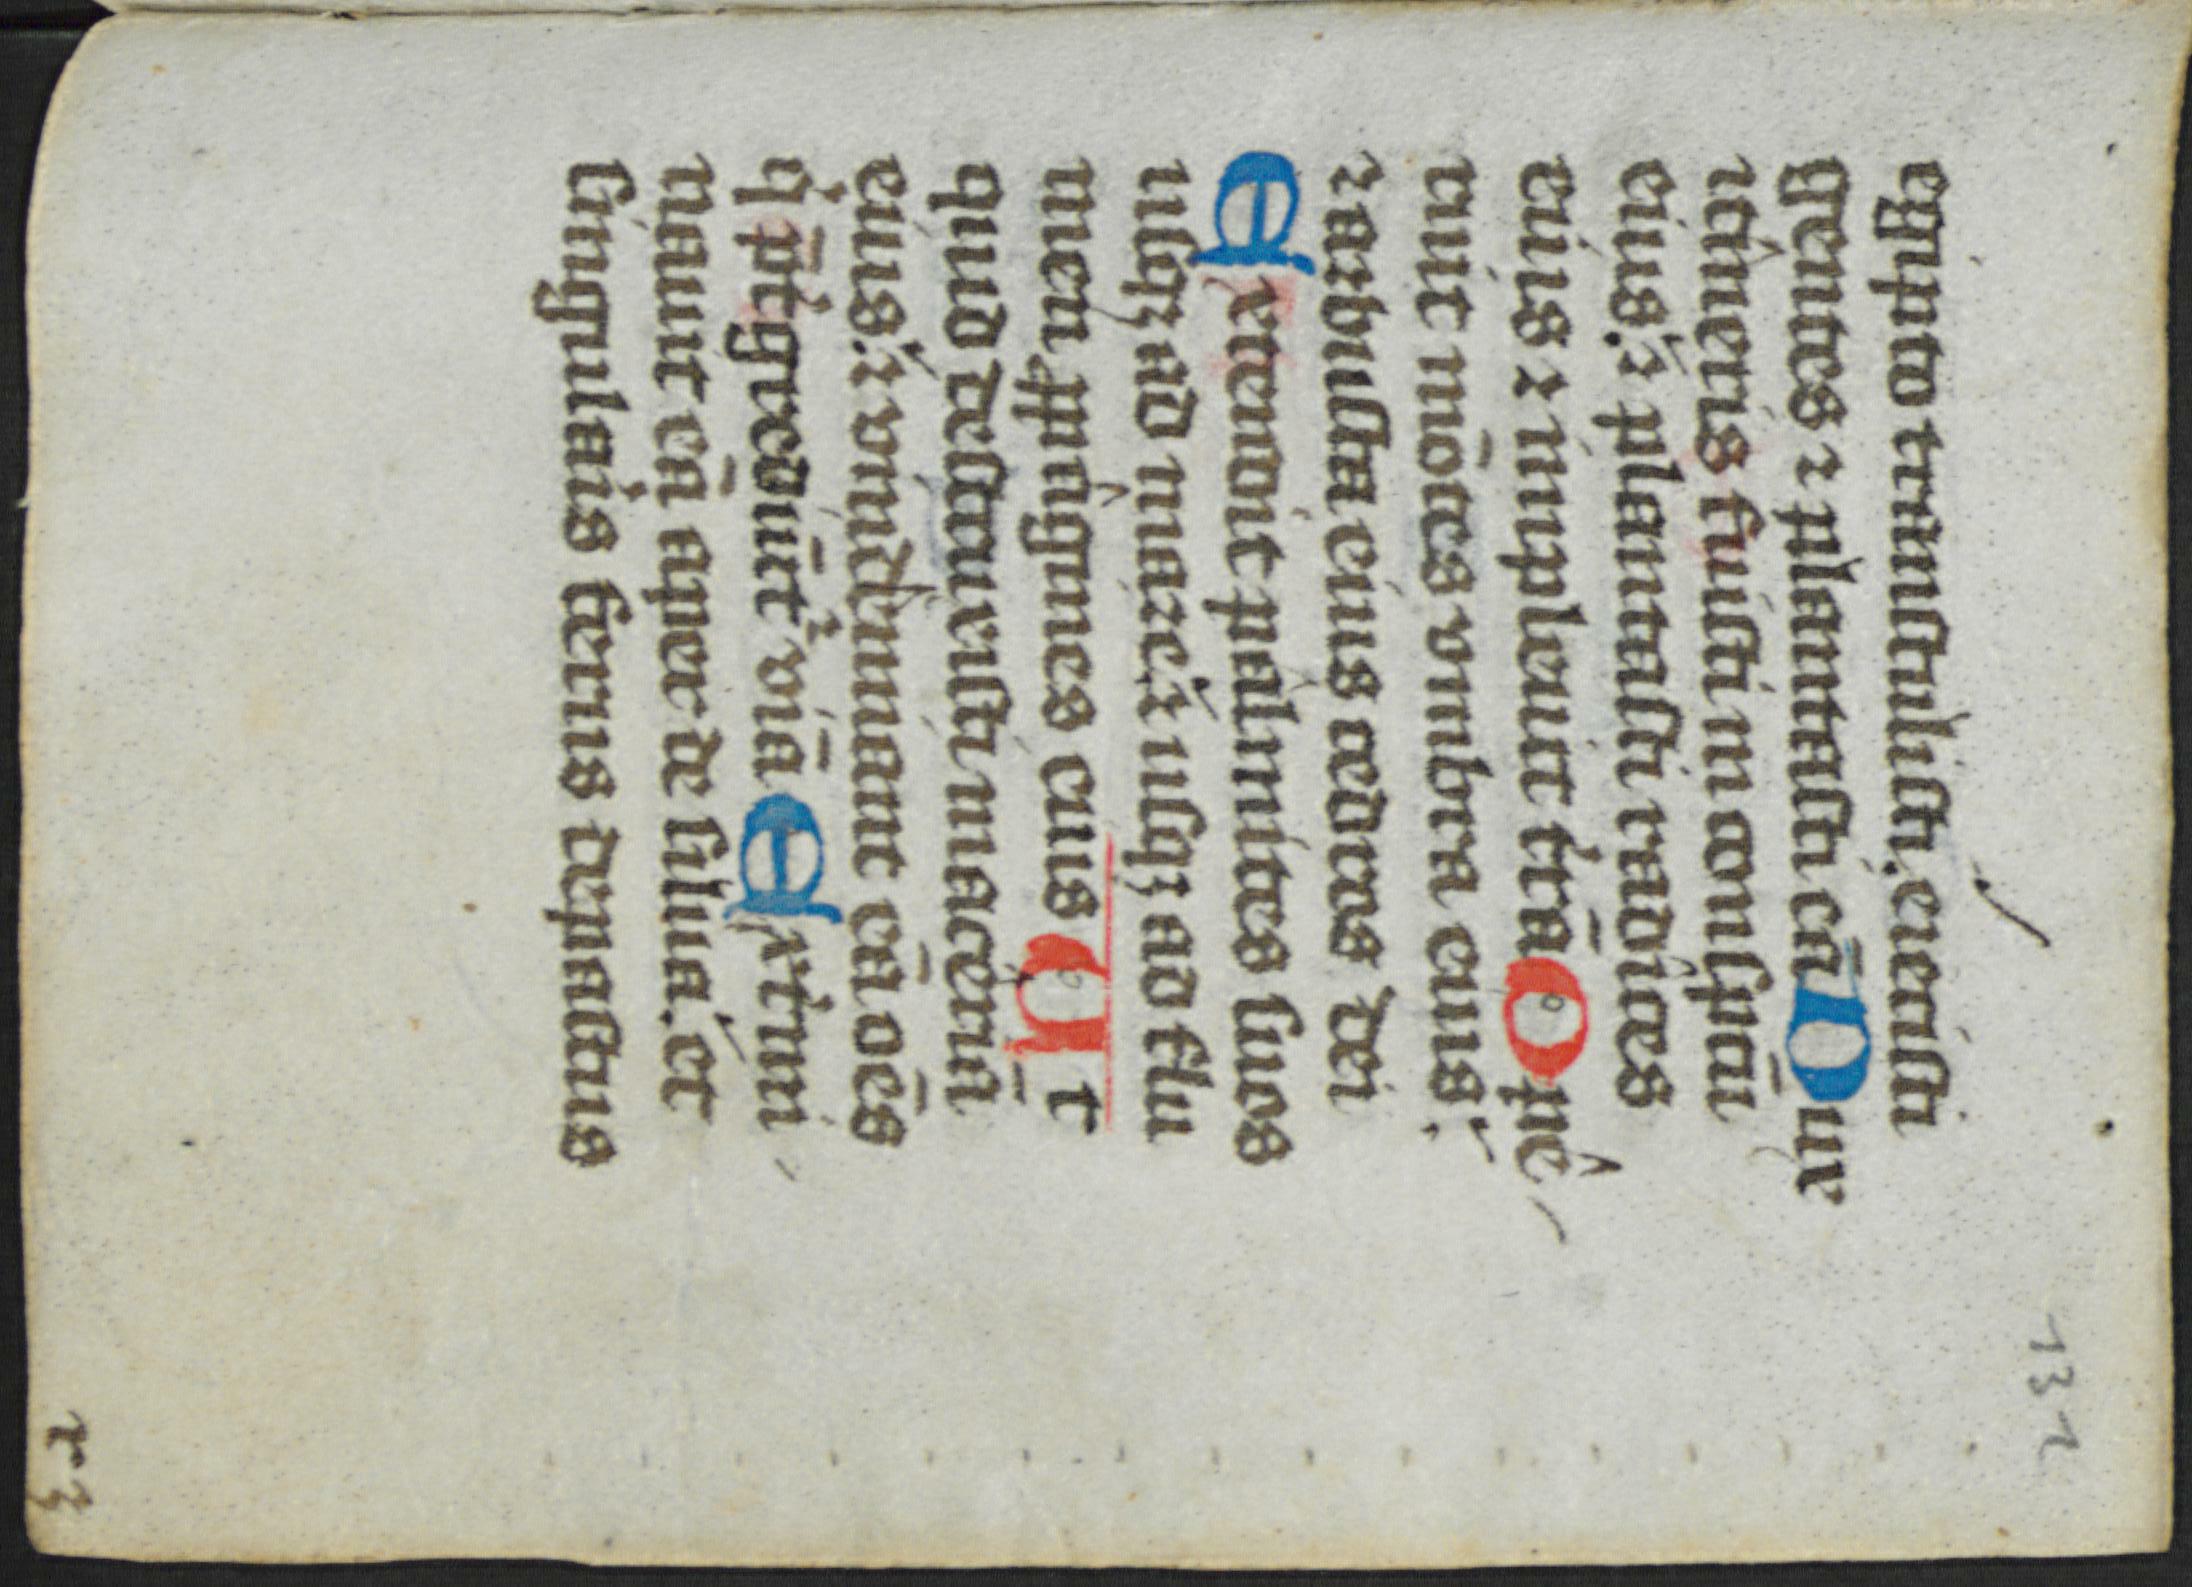 132
egipto transtulisti. eiecisti
gentes ⁊ plantasti eā Dux
itineris fuisti in conspcū
eius: ⁊ plantasti radices
eius ⁊ impleuit t͛rā Ope
ruit mōtes vmbra eius:
⁊ arbusta eius cedros dei
Extendit palmites suos
usqꝫ ad mare: ⁊ usqꝫ ad flu
men ꝓpagines eius Ut
quid destruxisti maceriā
eius: ⁊ vindemiant eā oēs
q̇ p̄tgrediūt᷑ viā Extermi
nauit eā aper de silua. et
singularis ferus depastus
r3